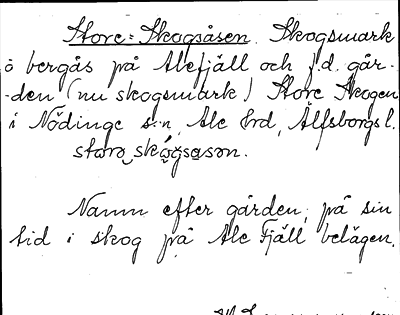 Store-Skogsåsen. Skogsmark
å bergås på Alefjäll och f.d. går-
den (nu skogsmark) Store Skogen
i Nödinge s:n, Ale hrd, Älfsborgs l.
Namn efter gården, på sin
tid i skog på Ale Fjäll belägen.